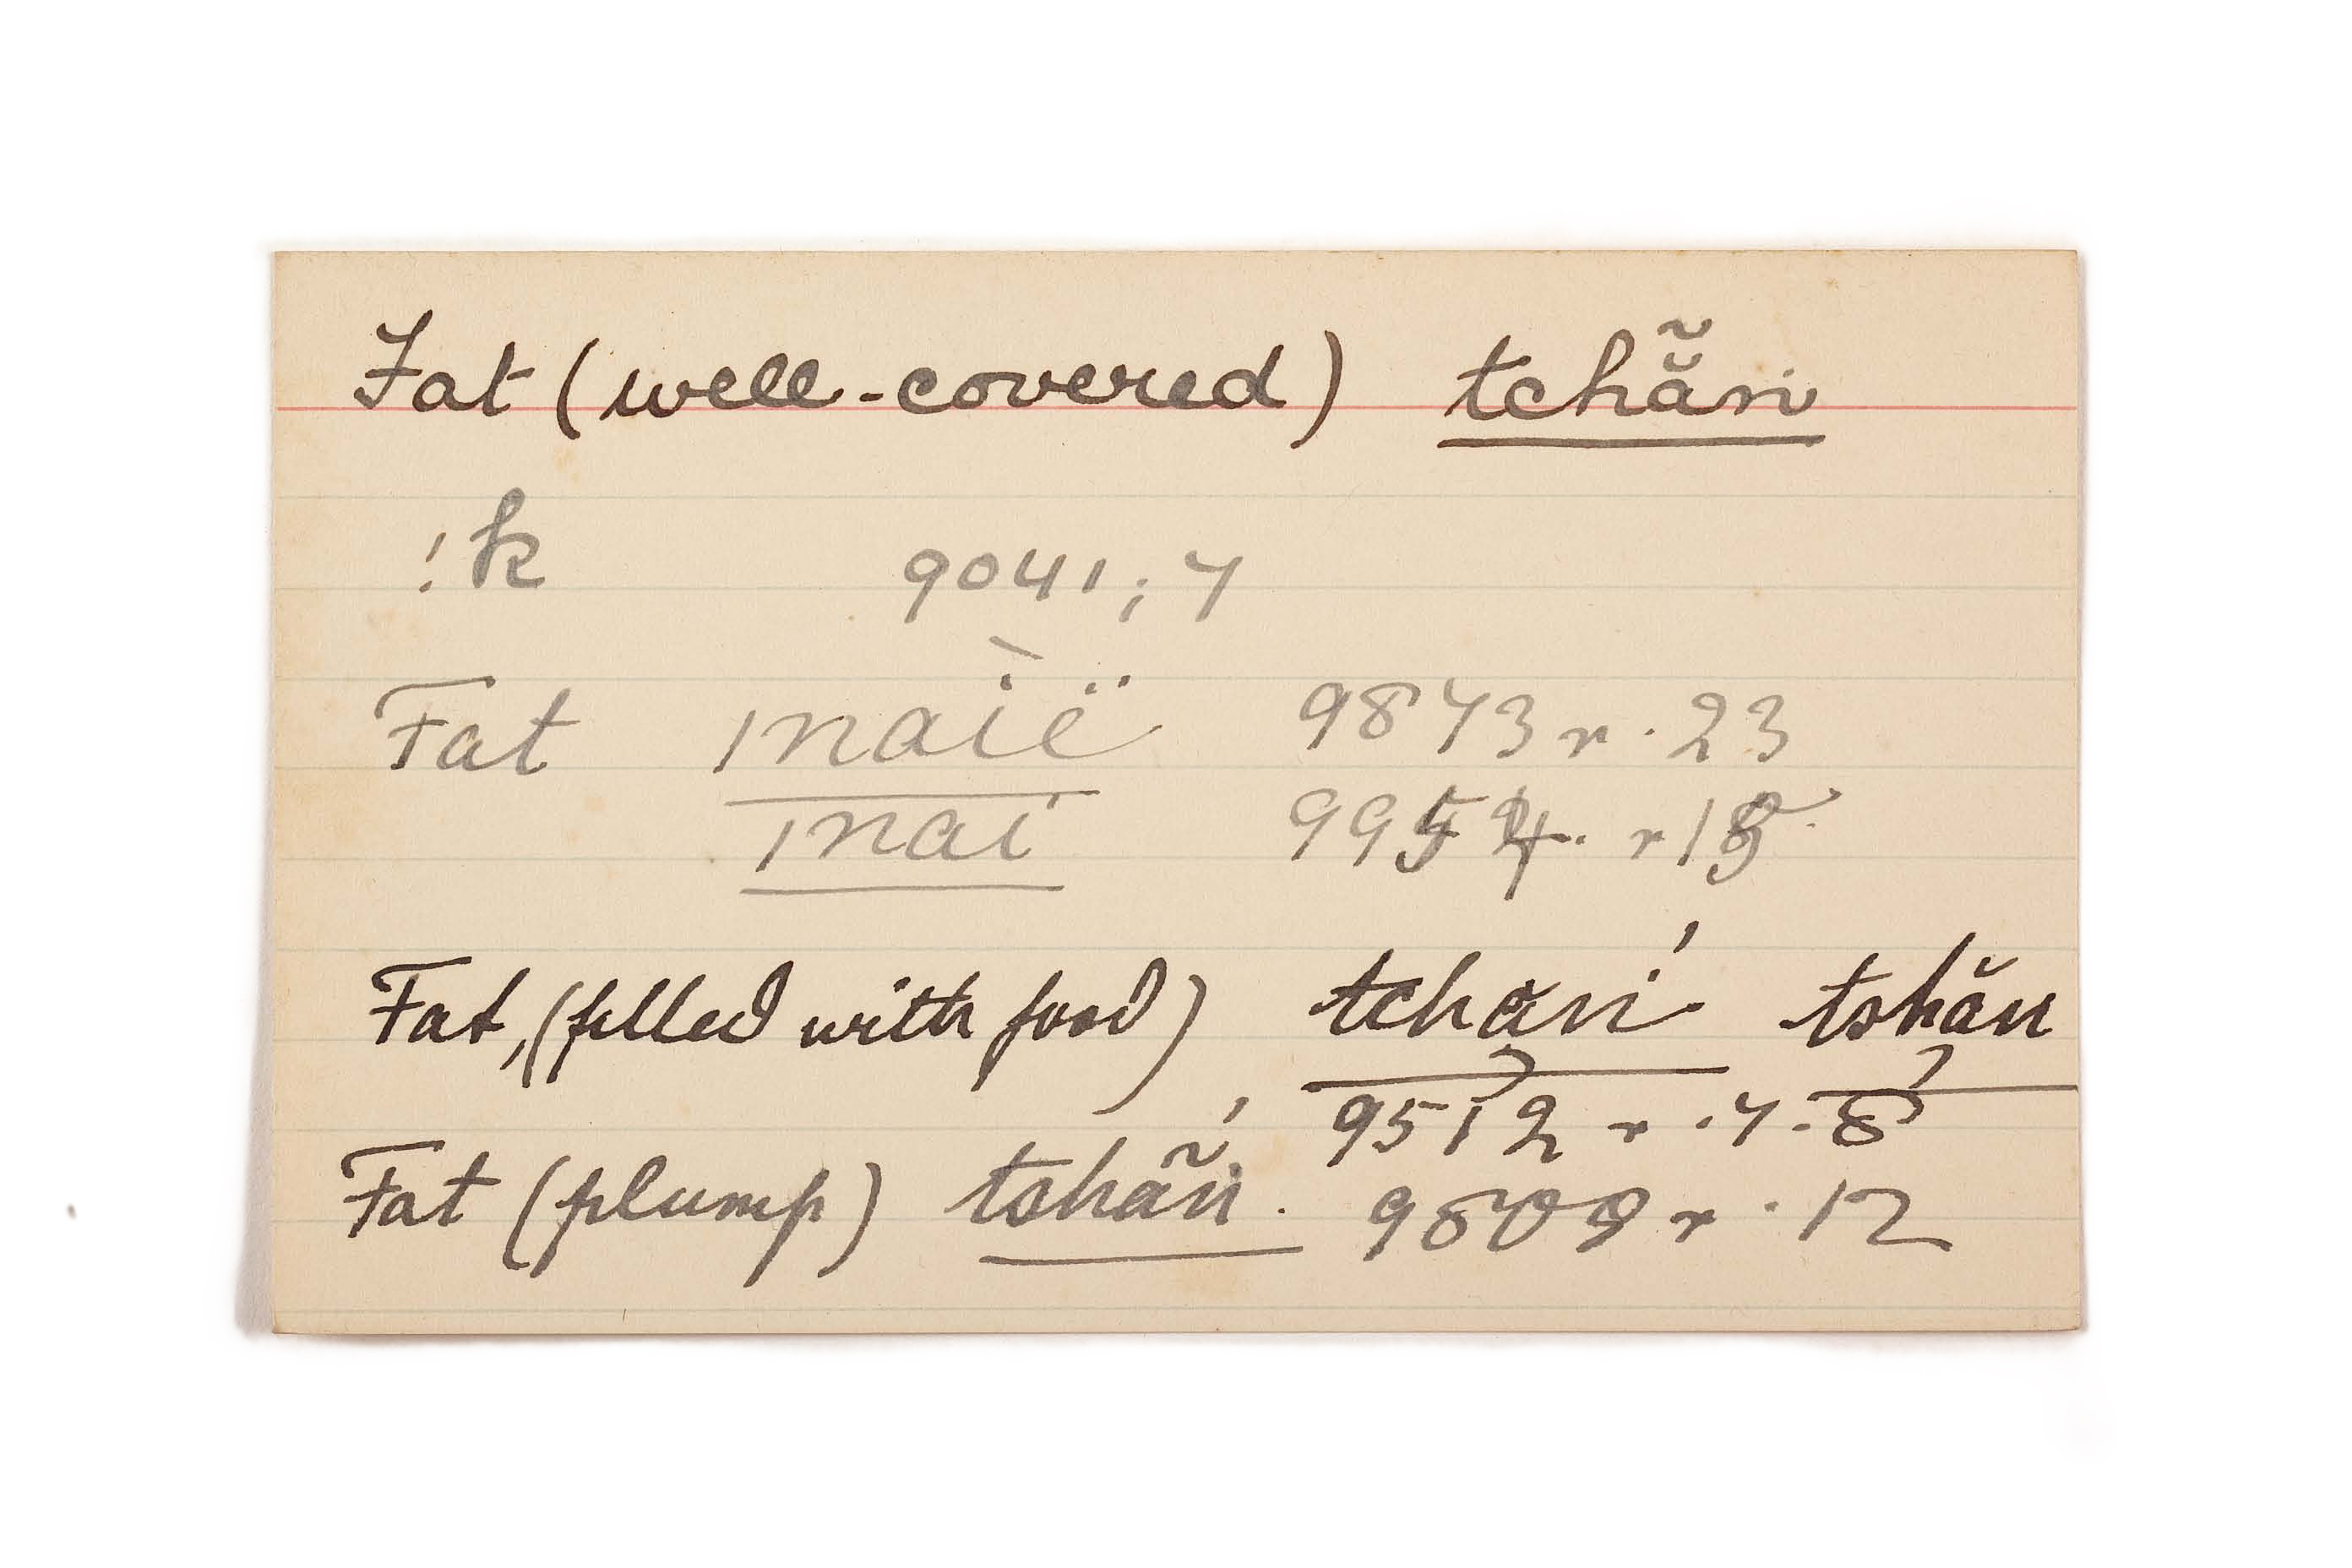 Fat (well-covered) tchã̆n
!k 9041; 7
Fat ınaìë 9873 r. 23
ınaï
Fat, (filled with food) tchăn' tshăn
9512 r. 7. 8
Fat (plump) tshãn'. 9809 r. 12